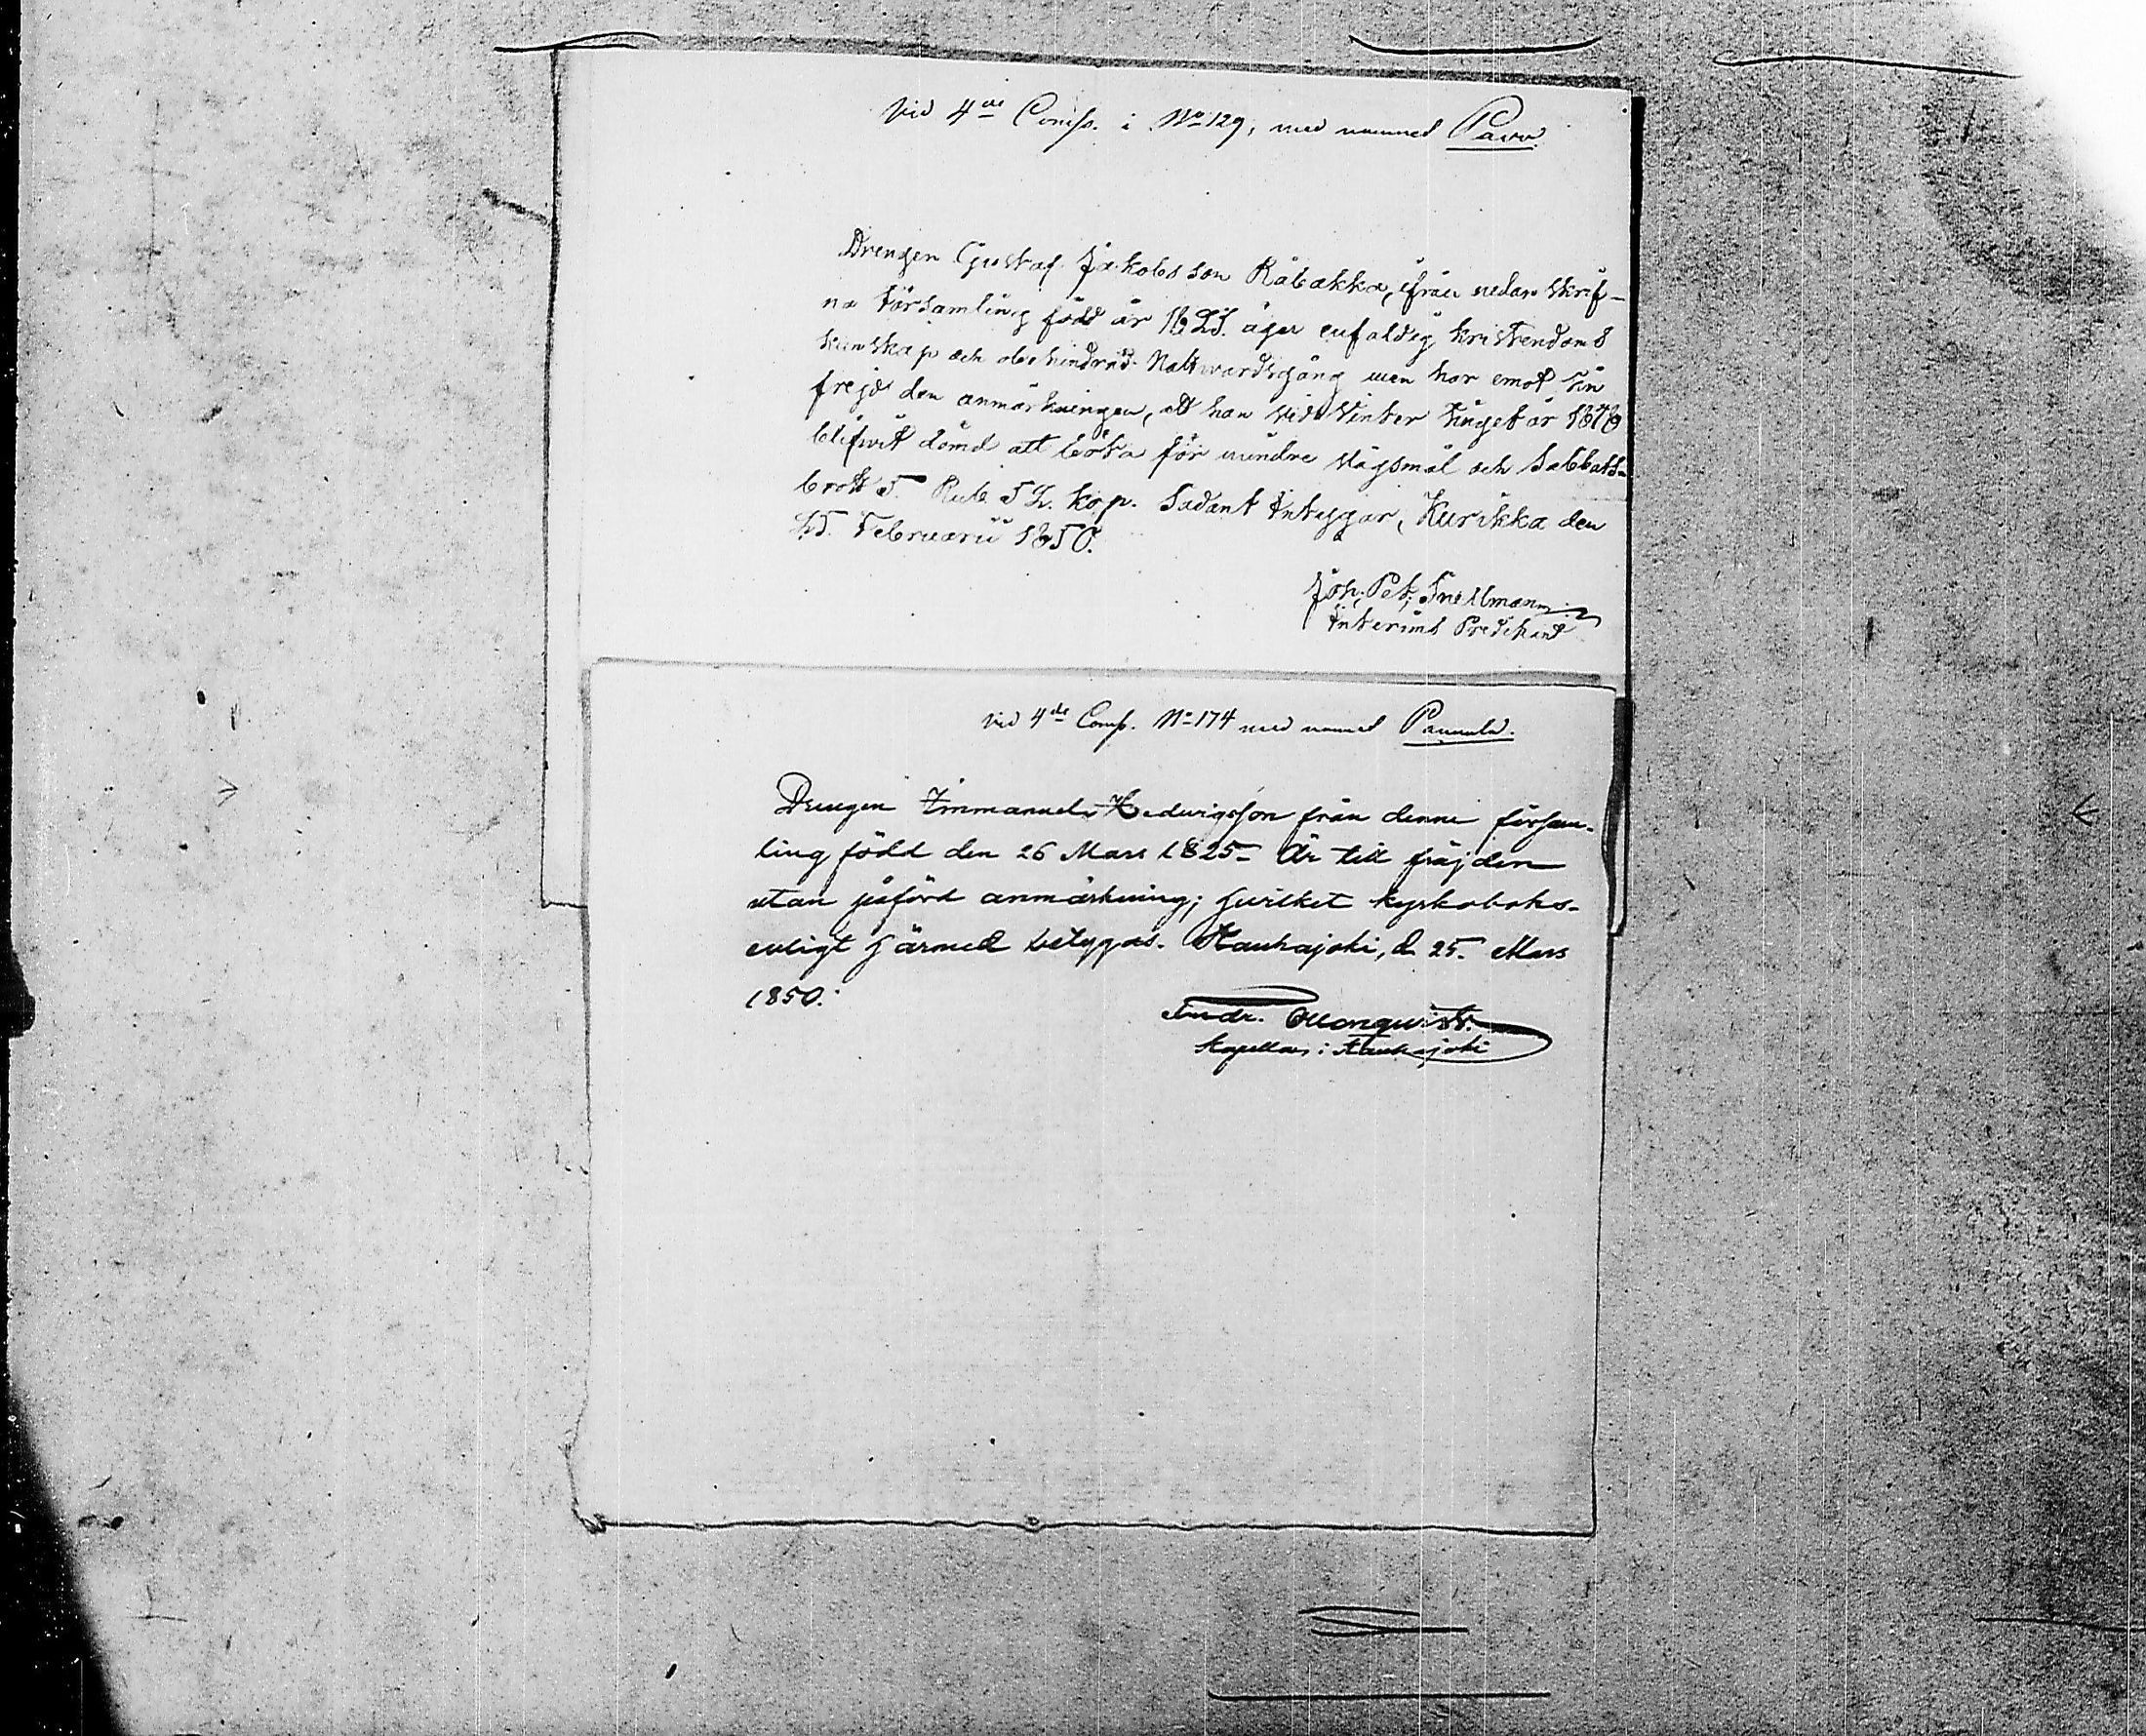 Vid 4de Comp. i No 129, med namnet Pavo.
Drengen Gustaf Jakobsson Råbakka, ifrån nedanskrif-
na församling född år 1825. äger enfaldig kristendoms
kunskap och obehindrad Nattvardsgång men har emot sin
frejd den anmärkningen, att han vid Vinter tinget år 1848
blifvit dömd att böta för mindre slagsmål och Sabbats-
brott 5 Rub. 52. kop. Sådant intygar, Kurikka den
25. Februarii 1850.
Joh. Pet. Snellman
Interims Predikant
Vid 4de Comp. No 174 med namnet Pannula.
Drengen Immanuel Hedvigsson från denne försam-
ling född den 26 Mars 1825 - Är till fräjden
utan påförd anmärkning; hvilket kyrkoboks-
enligt härmed betygas. Kauhajoki, d. 25. Mars
1850.
Andr.
Kapellan i Kauhajoki